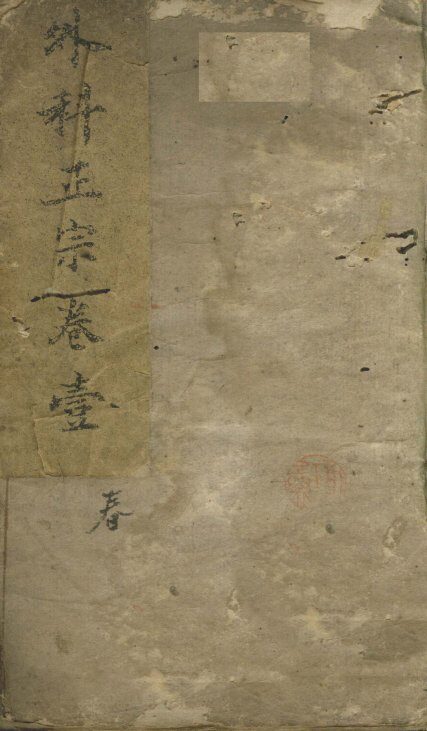 外科正宗卷壹
春